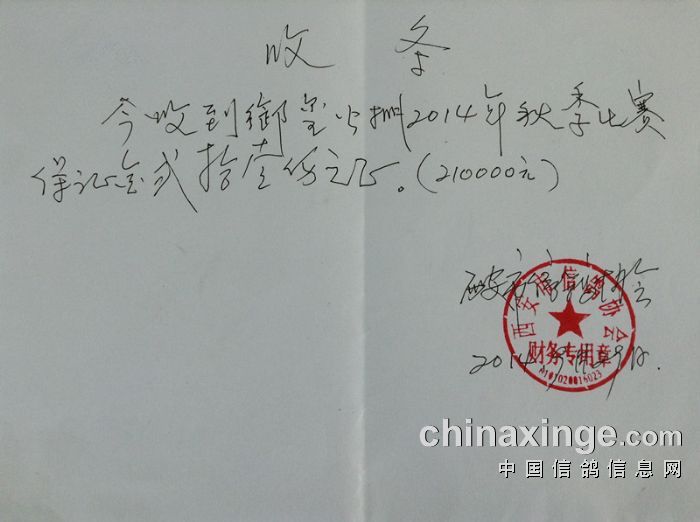 收条
今收到御玺公棚2014年秋季比赛
保证金贰拾壹万元正。(210000元)
西安市信鸽协会
2014
西安市信鸽协会
财务专用章
6101020016023
chinaxinge.com
中国信鸽信息网